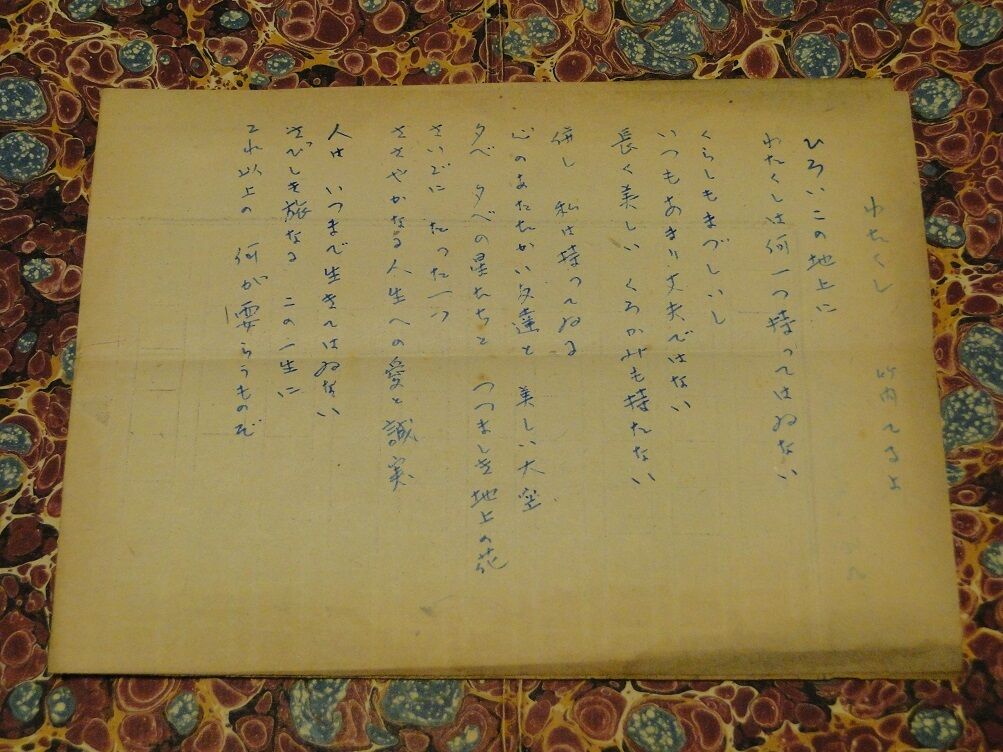 わたくし　竹内てるよ
ひろいこの地上に
わたくしは何一つ持ってはゐない
くらしもまづしいし
いつもあまり丈夫ではない
長く美しい　くろかみも持たない
併し　私は持ってゐる
心のあたたかい友達と　美しい大空
夕べ　夕べの星たちと　つつましき地上の花
さいごに　たった一つ
ささやかなる人生への愛と誠実
人は　いつまで生きてはゐない
さびしき旅なる　この一生に
これ以上の　何が要らうものぞ